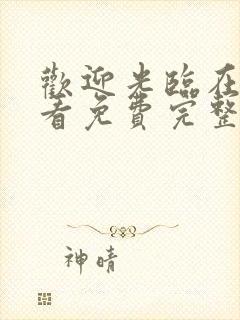 歡迎光臨在
看免費完整
神晴